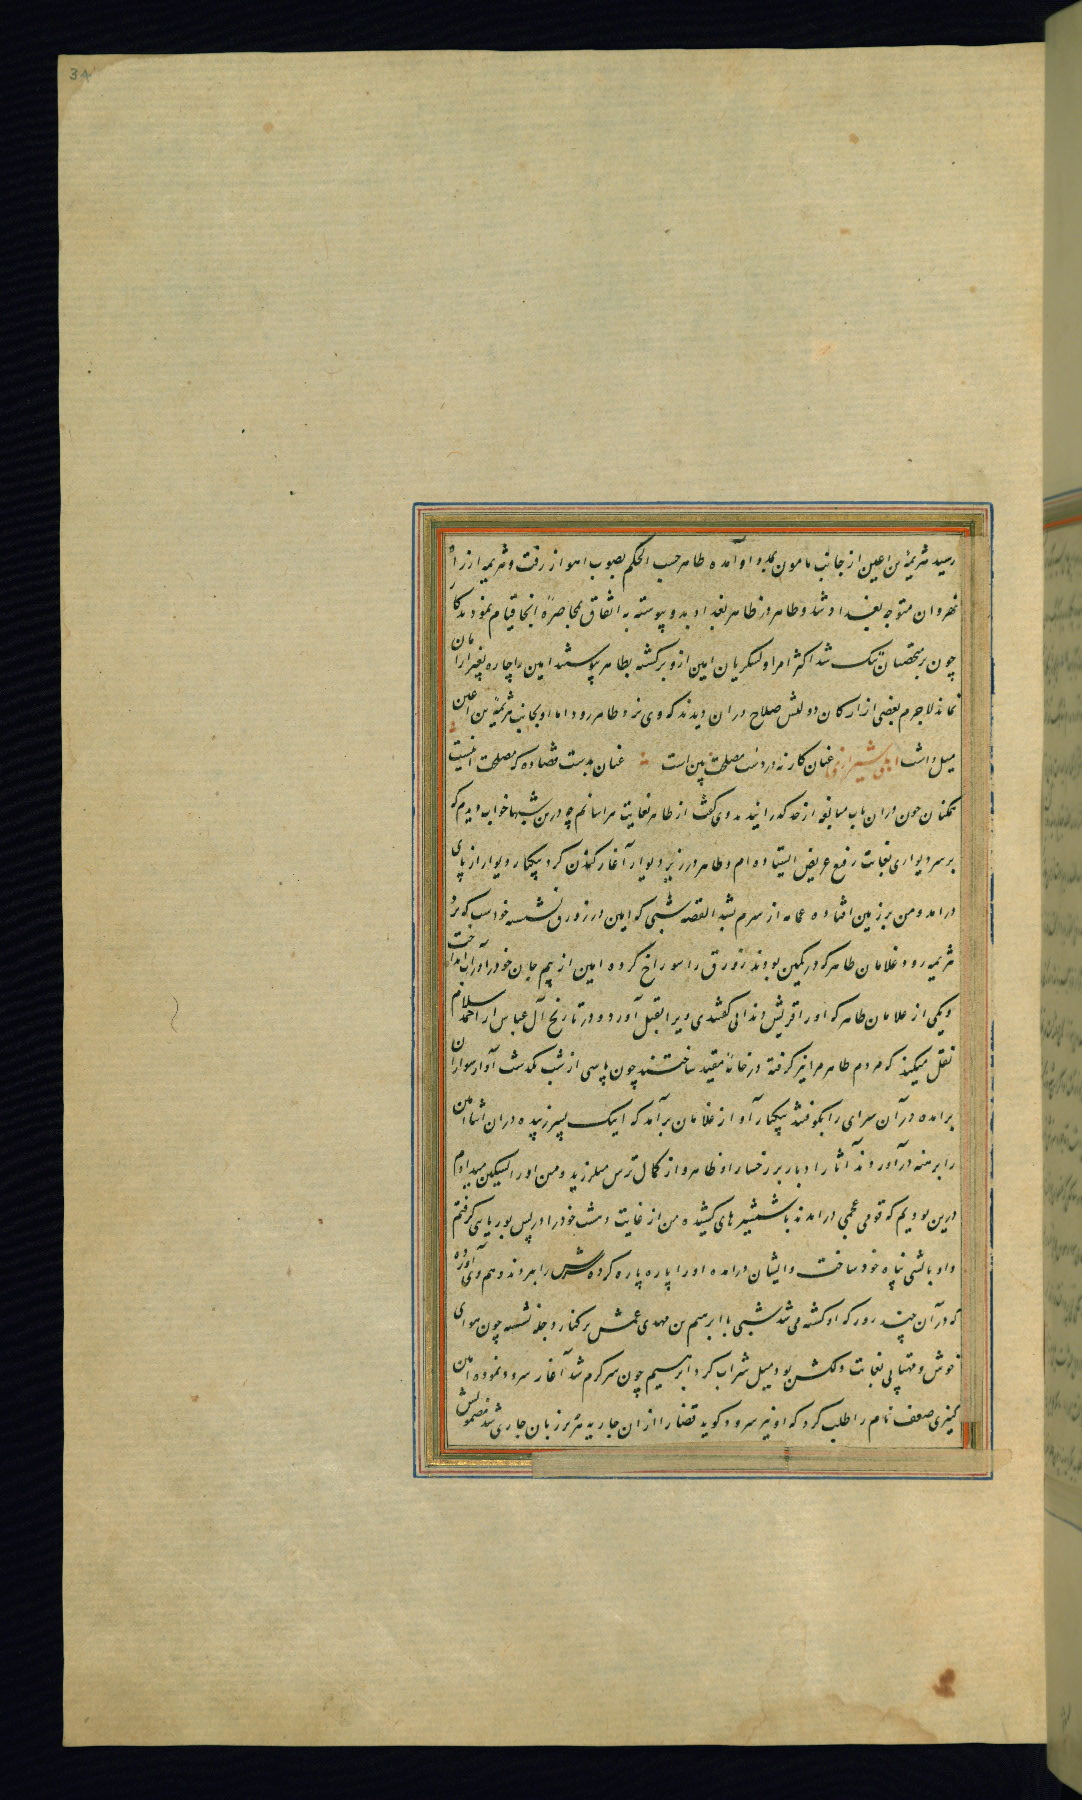 34
رسید هرثمهٔ بن اعین از جانب مامون بمدد او آمده طاهر حسب الحکم بصوب اهواز رفت و هرثمه از راه
نهروان متوجه بغداد شد و طاهر نیز ظاهر بغداد بدو پیوسته به اتفاق بمحاصرهٔ آنجا قیام نمودند کار
چون بر متحصنان تنگ شد اکثر امرا و لشکریان امین ازو برگشته بطاهر پیوستند امین را چاره بغیر از امان
نماند لاجرم بعضی از ارکان دولتش صلاح در ان دیدند که وی نزد طاهر رود اما او بجانب هرثمهٔ بن اعین
میل داشت اهلی شیرازی عنان کار نه در دست مصلحت بین است عنان بدست قضا ده که مصلحت اینست
همکنان چون در ان باب مبالغه از حد گذرانیدند وی گفت از طاهر بغایت هراسانم چه درین شبها خواب دیدم که
بر سر دیواری بغایت رفیع عریض ایستاده ام و طاهر در زیر دیوار آغاز کندن کرد بیکبار دیوار از پای
درامد و من بر زمین افتاده عمامه از سرم بشد القصه شبی که امین در زورق نشسته خواست که نزد
هرثمه رود غلامان طاهر که در کمین بودند زورق را سوراخ کرده امین از بیم جان خود را در آب انداخت
و یکی از غلامان طاهر که او را قریش دندانی گفتندی ویرا بقتل آورد و در تاریخ آل عباس از احمد سلام
نقل میکنند که مردم طاهر مرا نیز گرفته در خانهٔ مقید ساختند چون پاسی از شب بگذشت آواز سواران
برامده در آن سرای را بکوفتند بیکبار آواز غلامان برآمد که اینک پسر زبیده در ان اثنا امین
را برهنه درآوردند آثار ادبار بر رخسار او ظاهر و از کمال ترس میلرزید و من او را تسکین میدادم
درین بودیم که قومی عجمی درامدند با شمشیرهای کشیده من از غایت دهشت خود را در پس بوریایی گرفتم
و او بالشی پناه خود ساخت و ایشان درامده او را پاره پاره کرده سرش را ببردند و هم وی آورده
که در آن چند روز که او کشته می شد شبی با ابراهیم بن مهدی عمش بر کنار دجله نشسته چون هوای
خوش و مهتابی بغایت دلکش بود میل شراب کرد ابراهیم چون سرگرم شد آغاز سرود نموده امین
کنیزی صعف نام را طلب کرد که او نیز سرود گوید قضا را ازان جاریه نیز بر زبان جاری شد که مضمونش